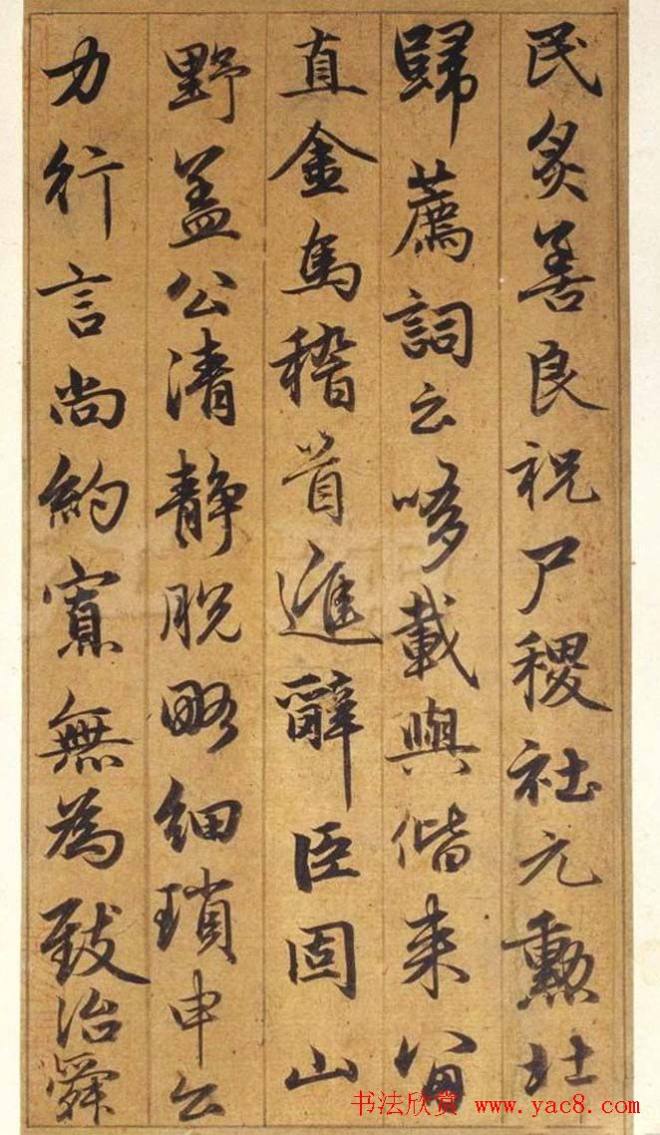 民炙善良祝尸稷社元勳北
歸薦詞云哆載與偕来留
直金馬稽首進辭臣固山
野蓋公清靜脱略細瑣申公
力行言尚約寡無為致治舜
书法欣赏 www.yac8.com